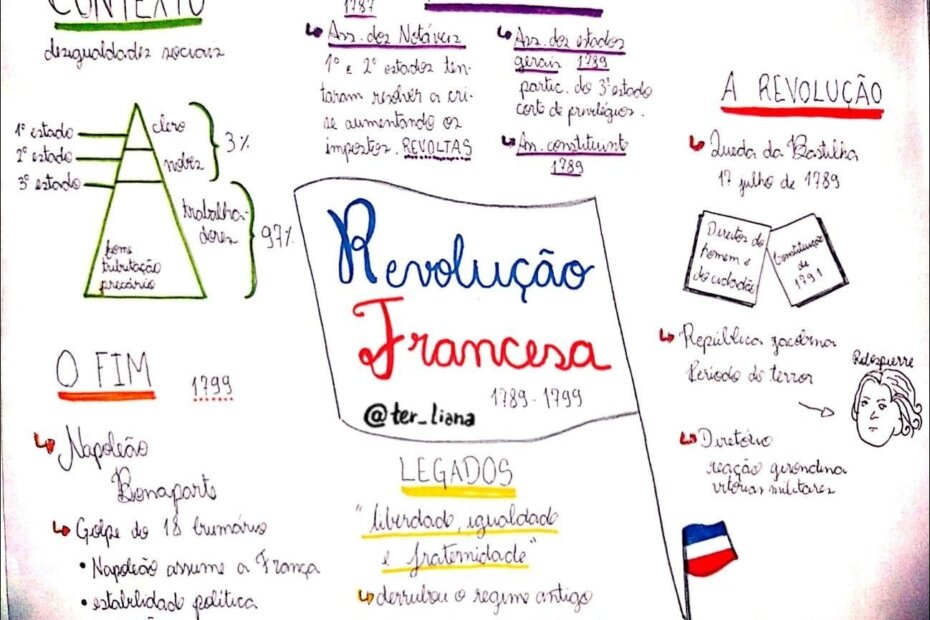 CONTEXTO
desigualdades sociais
1º estado
2º estado
3º estado
clero
nobres
3%
trabalha-
dores
97%
fome
tributação
precário
1787
Ass. dos Notáveis
1º e 2º estados ten-
taram resolver a cri-
se aumentando os
impostos. REVOLTAS
Ass. dos estados
gerais 1789
partic. do 3º estado
corte de privilégios.
Ass. constituinte
1789
A REVOLUÇÃO
Queda da Bastilha
17 julho de 1789
Direitos do
homem e
do cidadão
Constituição
de
1791
República jacobina
Período do terror
Robespierre
Diretório
reação girondina
vitórias militares
Revolução
Francesa
1789 - 1799
@ter_liana
O FIM
1799
Napoleão
Bonaparte
Golpe do 18 brumário
• Napoleão assume a França
• estabilidade política
LEGADOS
"liberdade, igualdade
e fraternidade"
derrubou o regime antigo